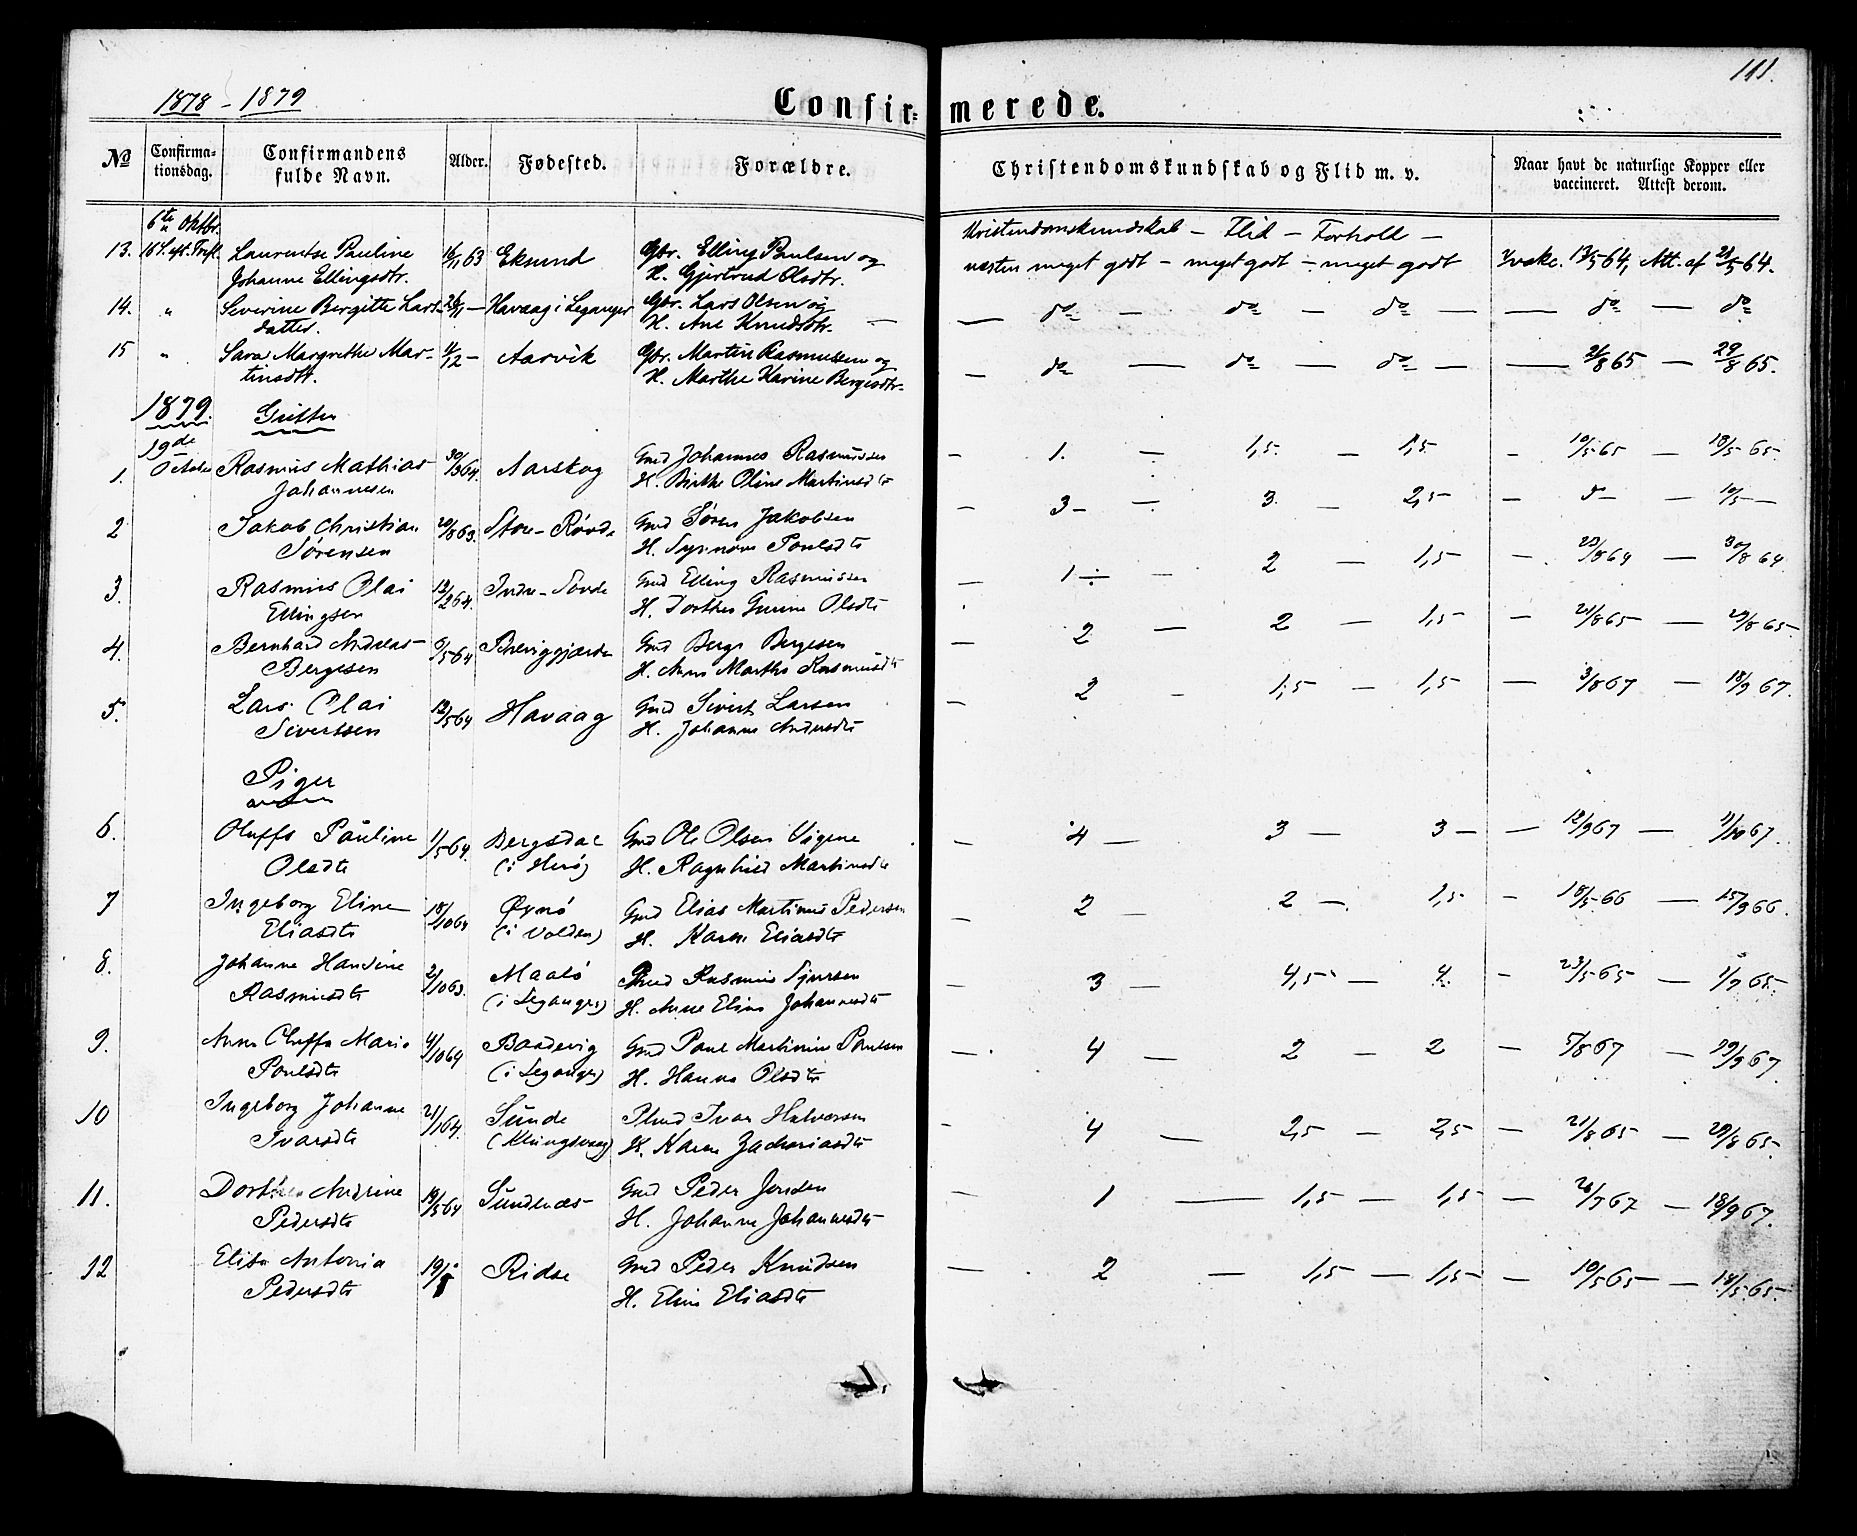 111.
1878 - 1879
Confirmerede.
No Confirmationsdag. Confirmandens fulde Navn. Alder. Fødested. Forældre. Christendomskundskab og Flid m. v. Naar havt de naturlige Kopper eller vaccineret. Attest derom.
6te Oktbr. Kristendomskundskab - Flid - Forhold -
13. 16 S. eft. Trefl. Laurentse Pauline 16/11 63 Eksund Gbr. Elling Paulsen og næsten meget godt - meget godt - meget godt Vake. 13/5 64, Att. af 21/5 64.
Johanne Ellingsdtr. H. Gjertrud Olsdtr.
14. " Severine Bergitte Lars- 26/11 - Havaag i Leganger Gbr. Lars Olsen og — do - do - do - — do — do
datter. H. Ane Knudsdtr. —
15 " Sara Margrethe Mar- 11/12 - Aarvik Gbr. Martin Rasmussen og - do — do — do - — 21/8 65 — 29/8 65.
tinsdtr. H. Marthe Karine Bergesdtr.
1879. Gutter
19de
1. October Rasmus Mathias 30/3 64. Aarskog Gmd Johannes Rasmussen - 1. - 1,5. - 1,5. - 10/5 65 - 18/5 65.
Johannesen H. Birthe Oline Martinsdtr
2 Jakob Christian 20/8 63. Store-Røvde Gmd Søren Jakobsen - 3 - 3. - 2,5 - do - 10/5 —
Sørensen H. Synnøve Poulsdtr
3. Rasmus Olai 12/2 64. Indre-Sovde Gmd Elling Rasmussen - 1 ÷ - 2 - 1,5 - 23/8 64 — 30/8 64.
Ellingsen H. Dorthea Olsdtr
4. Bernhard Andreas 6/5 64 Gmd Berge Bergesen - 2 - 2 - 1,5 - 21/8 65 - 29/8 65.
Bergesen H. Anne Marthe Rasmusdtr
5. Lars Olai 13/5 64 Havaag Gmd Sivert Larsen - 2 - 1,5 - 1,5 - 3/8 67 - 18/9 67.
Sivertsen H. Johanne Andersdtr
Piger
6. Oluffa Pauline 1/5 64. Bergsdal Gmd Ole Olsen Vigene - 4 — 3 — 3 - — 12/9 67 — 11/10 67.
Olsdtr (i Herø) H. Ragnhild Martinsdtr
7 Ingeborg Eline 18/10 64 Øynö Gmd Elias Martinus Pedersen - 2 - 2 -. 1,5 - 18/5 66 — 15/9 66.
Eliasdtr (i Volden) H. Karen Eliasdtr
8. Johanne Hansine 2/10 63. Maalö Rasmus Sjursen - 3 - 4,5 - 4. - 23/5 65 - 1/9 65.
Rasmusdtr (i Leganger) H. Anne Eline Johannesdtr
9. Anne Oluffa Marie 4/10 64 Baadevig Gmd Paul Martinius Paulsen — 4 - 2 - 2 - 5/8 67 — 29/9 67.
Poulsdtr (i Leganger) H. Hanna Olsdtr
10 Ingeborg Johanne 21/1 64. Sunde Plmd Ivar Halvorsen - 4 — 2,5 - 2,5 - 21/8 65 - 29/8 65.
Ivarsdtr H. Karen Zachariasdtr
11. Dorthea Andrine 19/5 64 Sundenæs Gmd Peder Jensen - 1 — 1,5 - 1,5 - 26/7 67 - 18/9 67.
Pedersdtr H. Johanne Johannesdtr
12 Elisa Antonia 19/8 Ridse Gmd Peder Knudsen — 2 — 1,5 — 1,5 - 10/5 65 - 18/5 65.
Pedersdtr H. Eline Eliasdtr